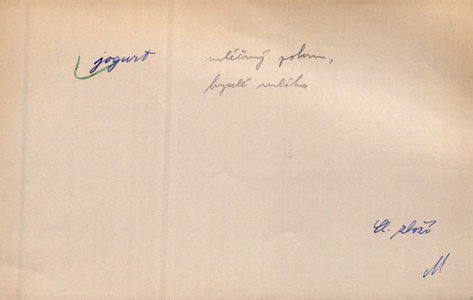 jogurt mléčný pokrm,
kyselé mléko
zboží
M